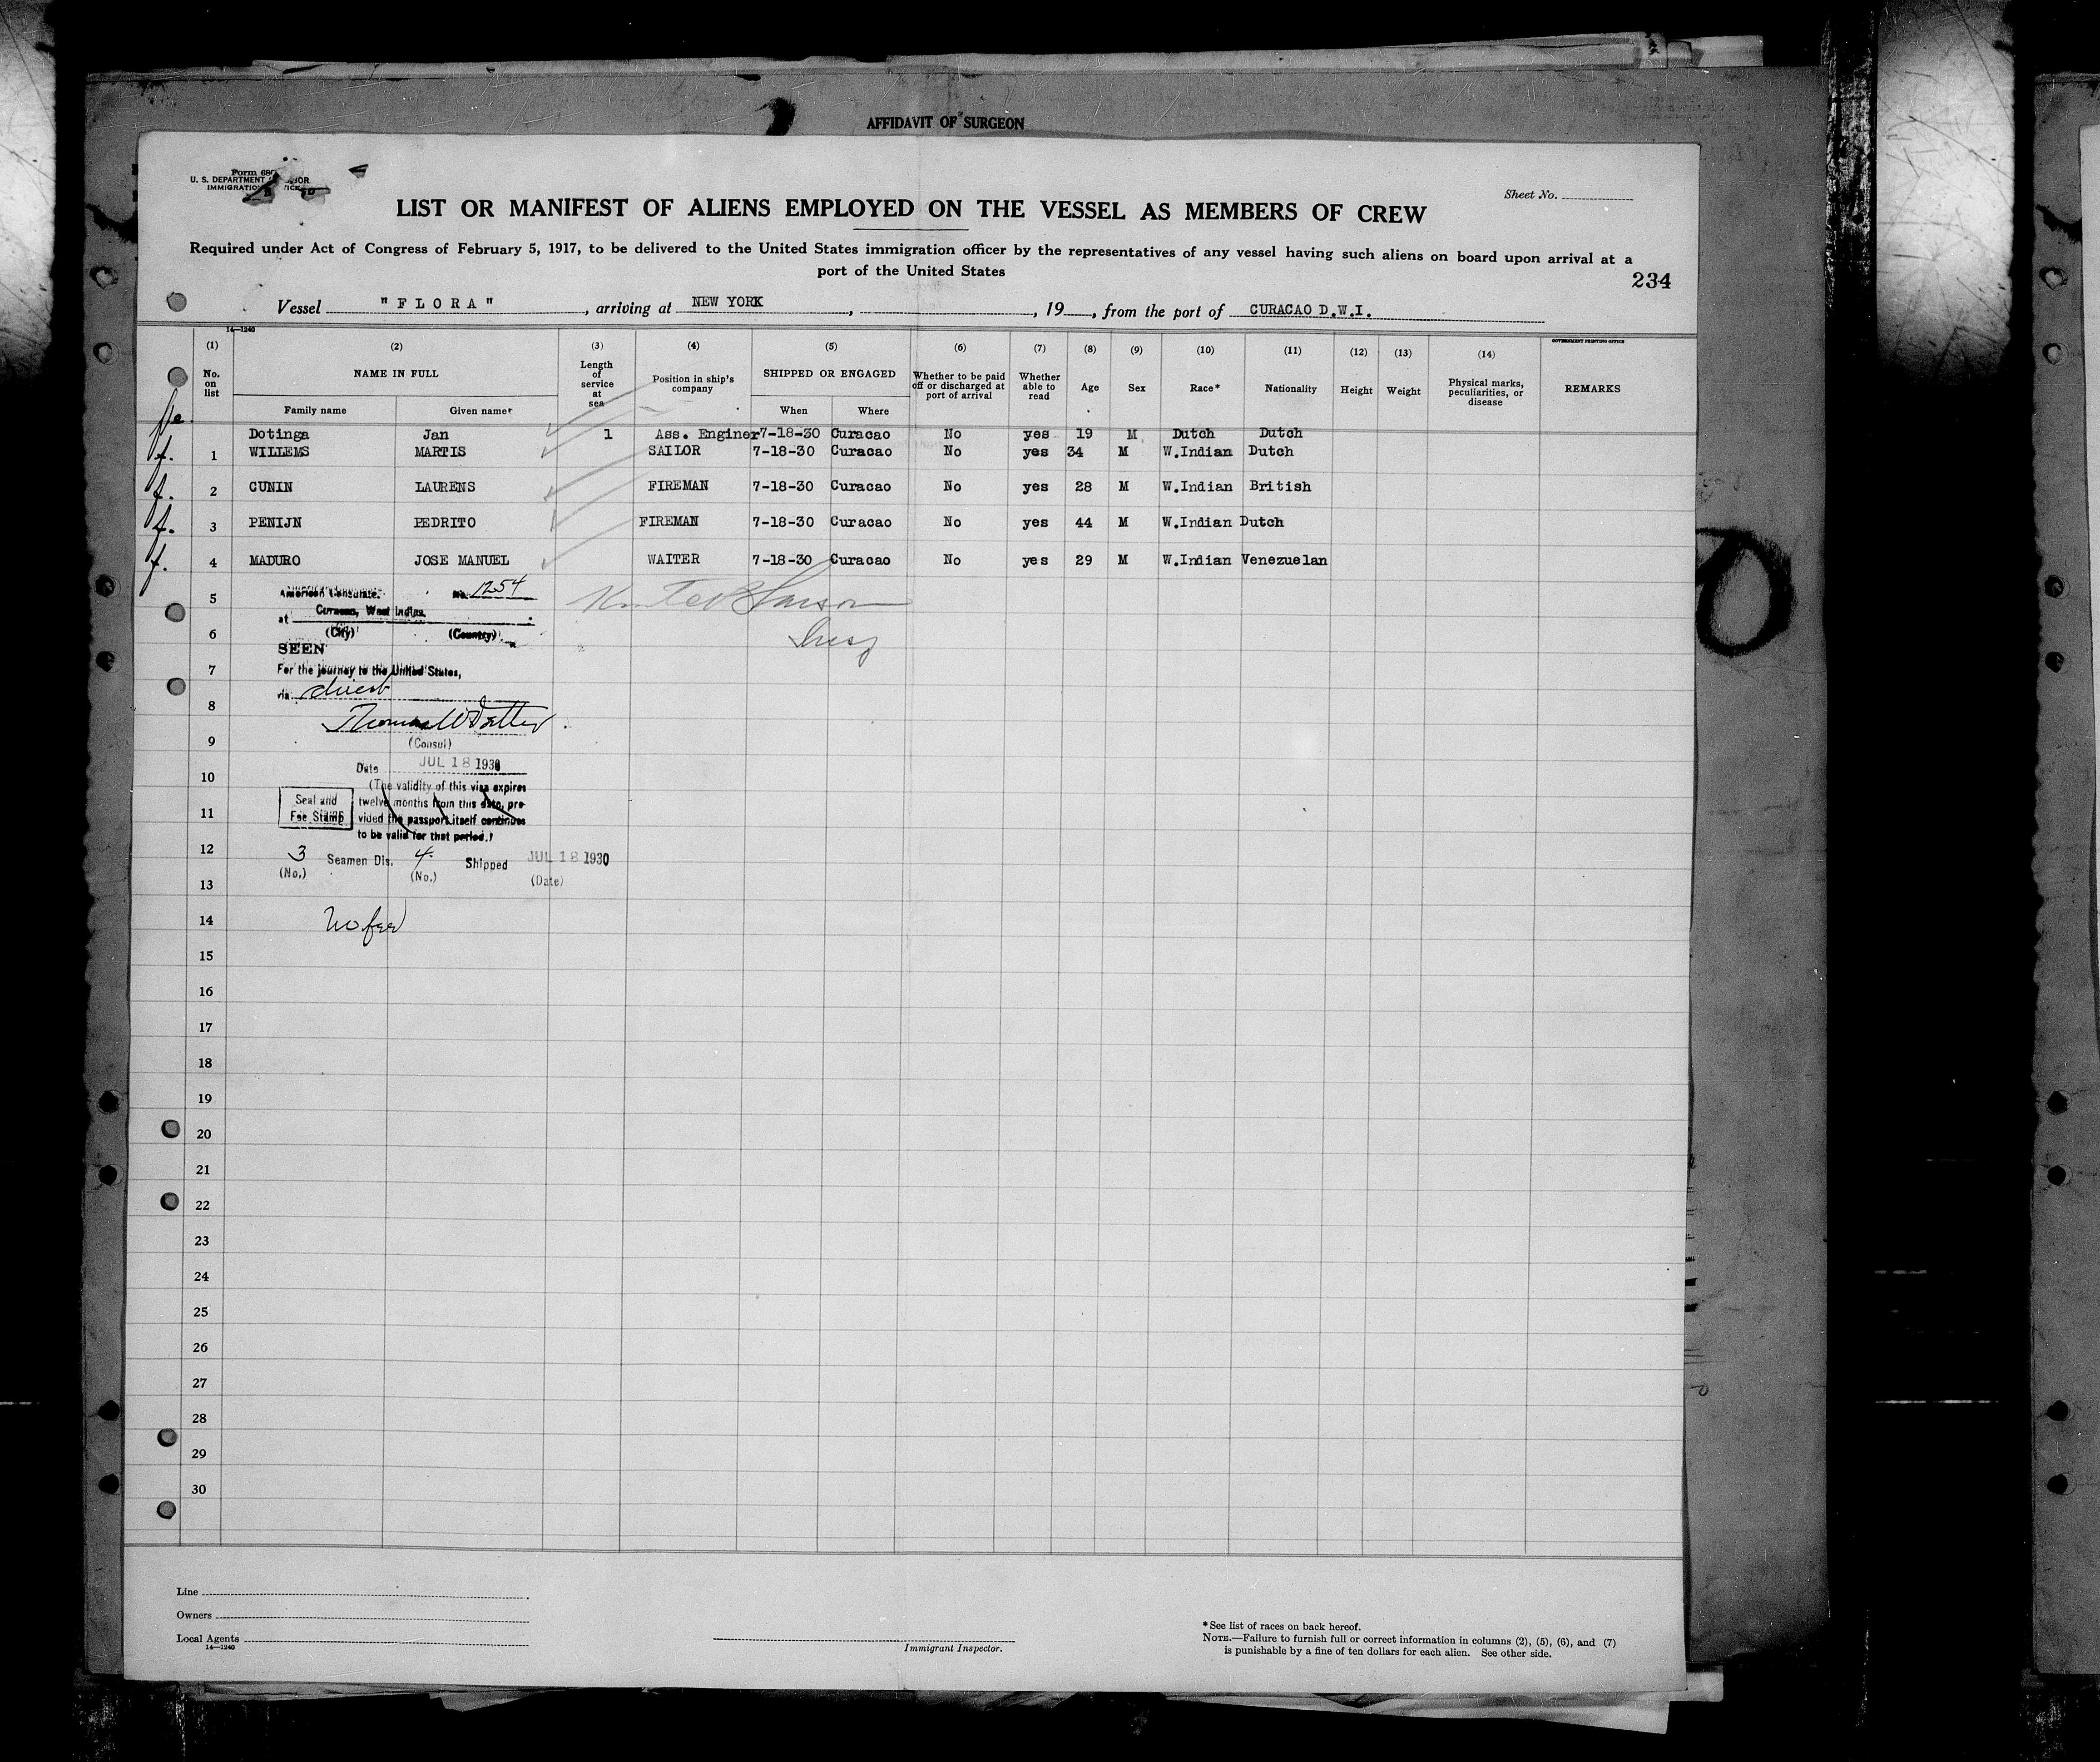 AFFIDAVIT OF SURGEON
Form 680
U. S. DEPARTMENT
IMMIGRATION
Sheet No.
LIST OR MANIFEST OF ALIENS EMPLOYED ON THE VESSEL AS MEMBERS OF CREW
Required under Act of Congress of February 5, 1917, to be delivered to the United States immigration officer by the representatives of any vessel having such aliens on board upon arrival at a
port of the United States
234
Vessel "FLORA", arriving at NEW YORK, , 19 , from the port of CURACAO D.W.I.
14—1240
GOVERNMENT PRINTING OFFICE
(1) (2) (3) (4) (5) (6) (7) (8) (9) (10) (11) (12) (13) (14)
No. on list NAME IN FULL Length of service at sea Position in ship's company SHIPPED OR ENGAGED Whether to be paid off or discharged at port of arrival Whether able to read Age Sex Race* Nationality Height Weight Physical marks, peculiarities, or disease REMARKS
Family name Given name When Where
Dotinga Jan 1 Ass. Enginer 7-18-30 Curacao No yes 19 M Dutch Dutch
f. 1 WILLEMS MARTIS SAILOR 7-18-30 Curacao No yes 34 M W.Indian Dutch
f. 2 CUNIN LAURENS FIREMAN 7-18-30 Curacao No yes 28 M W.Indian British
f. 3 PENIJN PEDRITO FIREMAN 7-18-30 Curacao No yes 44 M W.Indian Dutch
f. 4 MADURO JOSE MANUEL WAITER 7-18-30 Curacao No yes 29 M W.Indian Venezuelan
American Consulate. No. 1254
5
at Curacao, West Indies.
6 (City) (Country)
SEEN
7 For the journey to the United States,
via direct
8
9 (Consul)
Date JUL 18 1930
10 (The validity of this visa expires
Seal and Fee Stamp
11 twelve months from this date, pro-
vided the passport itself continues
to be valid for that period.)
12
3 Seamen Dis. 4 Shipped JUL 18 1930
(No.) (No.) (Date)
13
14 No fee
15
16
17
18
19
20
21
22
23
24
25
26
27
28
29
30
Line
Owners
Local Agents
14—1240
Immigrant Inspector.
*See list of races on back hereof.
NOTE.—Failure to furnish full or correct information in columns (2), (5), (6), and (7)
is punishable by a fine of ten dollars for each alien. See other side.